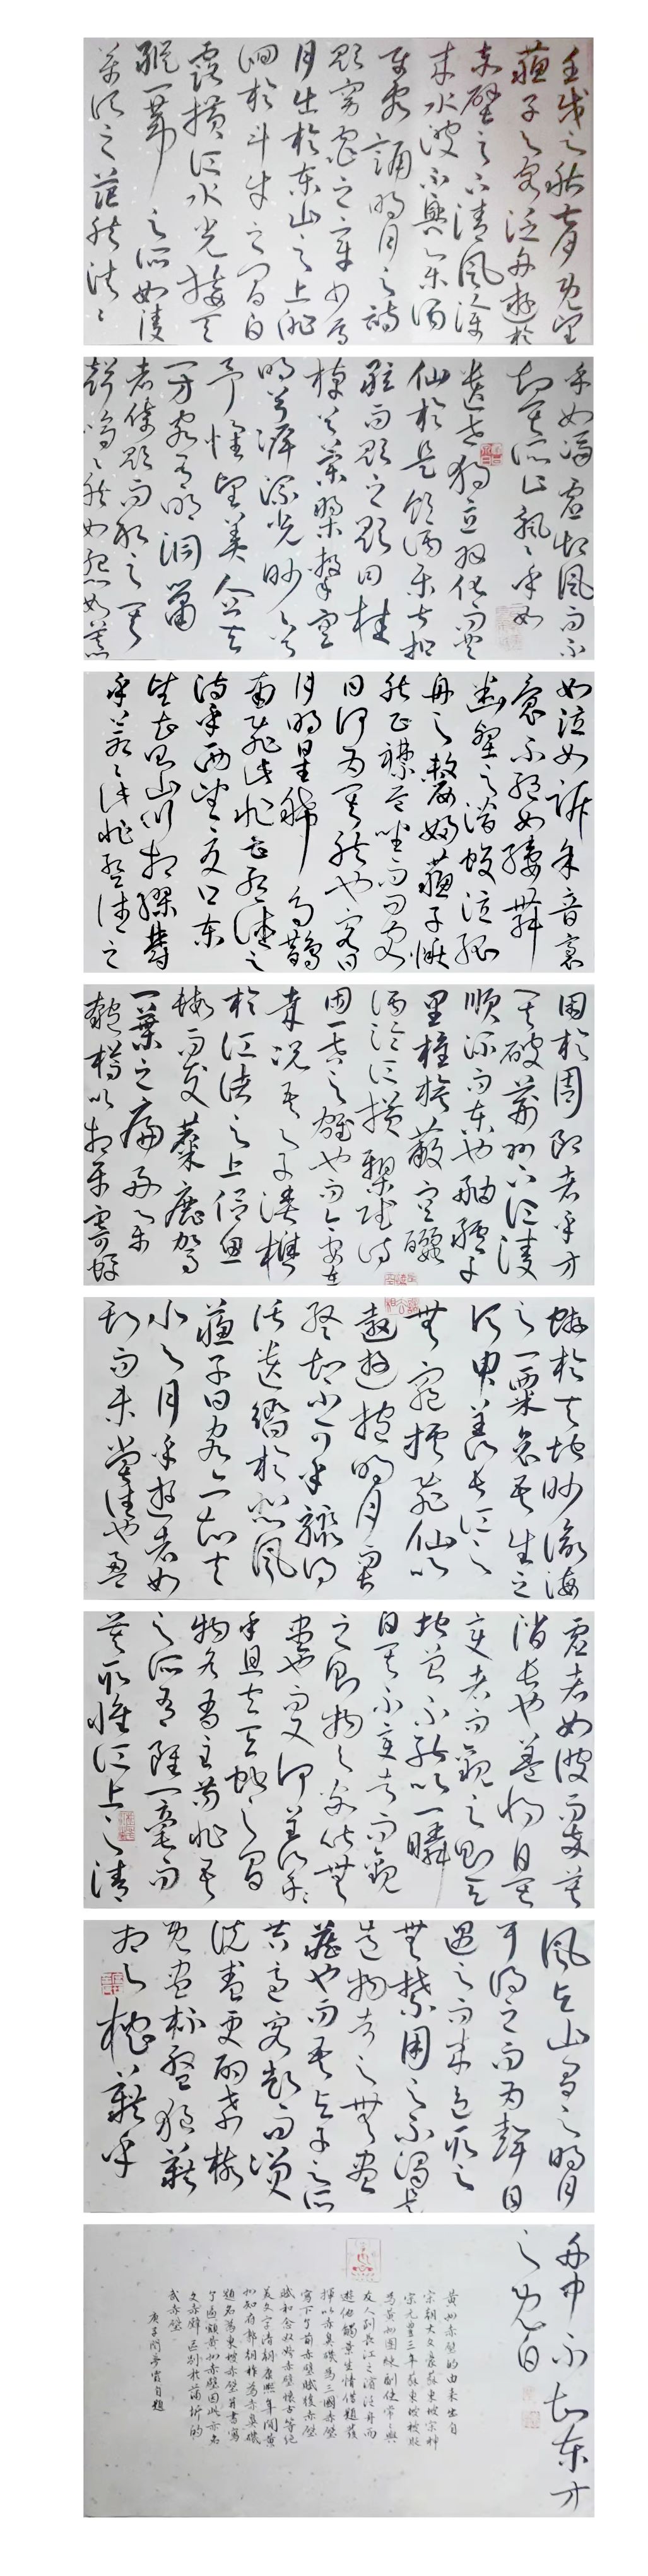 壬戌之秋七月既望
蘇子與客泛舟遊於
赤壁之下清風徐
來水波不興舉酒
屬客誦明月之詩
歌窈窕之章少焉
月出於東山之上徘
徊於斗牛之間白
露橫江水光接天
縱一葦之所如凌
萬頃之茫然浩浩
乎如馮虛御風而不
知其所止飄飄乎如
遺世獨立羽化而登
仙於是飲酒樂甚扣
舷而歌之歌曰桂
棹兮蘭槳擊空
明兮泝流光渺渺兮
予懷望美人兮天
一方客有吹洞簫
者倚歌而和之其
聲嗚嗚然如怨如慕
如泣如訴余音裊
裊不絕如縷舞
幽壑之潛蛟泣孤
舟之嫠婦蘇子愀
然正襟危坐而問客
曰何為其然也客曰
月明星稀烏鵲
南飛此非曹孟德之
詩乎西望夏口東
望武昌山川相繆鬱
乎蒼蒼此非孟德之
困於周郎者乎方
其破荊州下江陵
順流而東也舳艫千
里旌旗蔽空釃
酒臨江橫槊賦詩
固一世之雄也而今安在
哉況吾與子漁樵
於江渚之上侶魚
蝦而友麋鹿駕
一葉之扁舟舉
匏樽以相屬寄蜉
蝣於天地渺滄海
之一粟哀吾生之
須臾羨長江之
無窮挾飛仙以
遨遊抱明月而長
終知不可乎驟得
託遺響於悲風
蘇子曰客亦知夫
水與月乎逝者如
斯而未嘗往也盈
虛者如彼而卒莫
消長也蓋將自其
變者而觀之則天
地曾不能以一瞬
自其不變者而觀
之則物與我皆無
盡也而又何羨
乎且夫天地之間
物各有主苟非吾
之所有雖一毫而
莫取惟江上之清
風與山間之明月
耳得之而為聲目
遇之而成色取之
無禁用之不竭是
造物者之無盡
藏也而吾與子之所
共適客喜而笑
洗盞更酌肴核
既盡杯盤狼藉
相與枕藉乎
舟中不知東方
之既白
黃州赤壁的由來出自
宋朝大文豪蘇東坡宋神
宗元豐三年蘇東坡被貶
為黃州團練副使常與
友人到長江之濱泛舟而
遊他觸景生情借題發
揮以赤鼻磯為三國赤壁
寫下了前赤壁賦後赤壁
賦和念奴嬌赤壁懷古等絕
美文字清朝康熙年間黃
州知府郭朝祚為赤鼻磯
題名為東坡赤壁并書寫
了匾額黃州赤壁因此亦名
文赤壁區別於蒲圻的
武赤壁